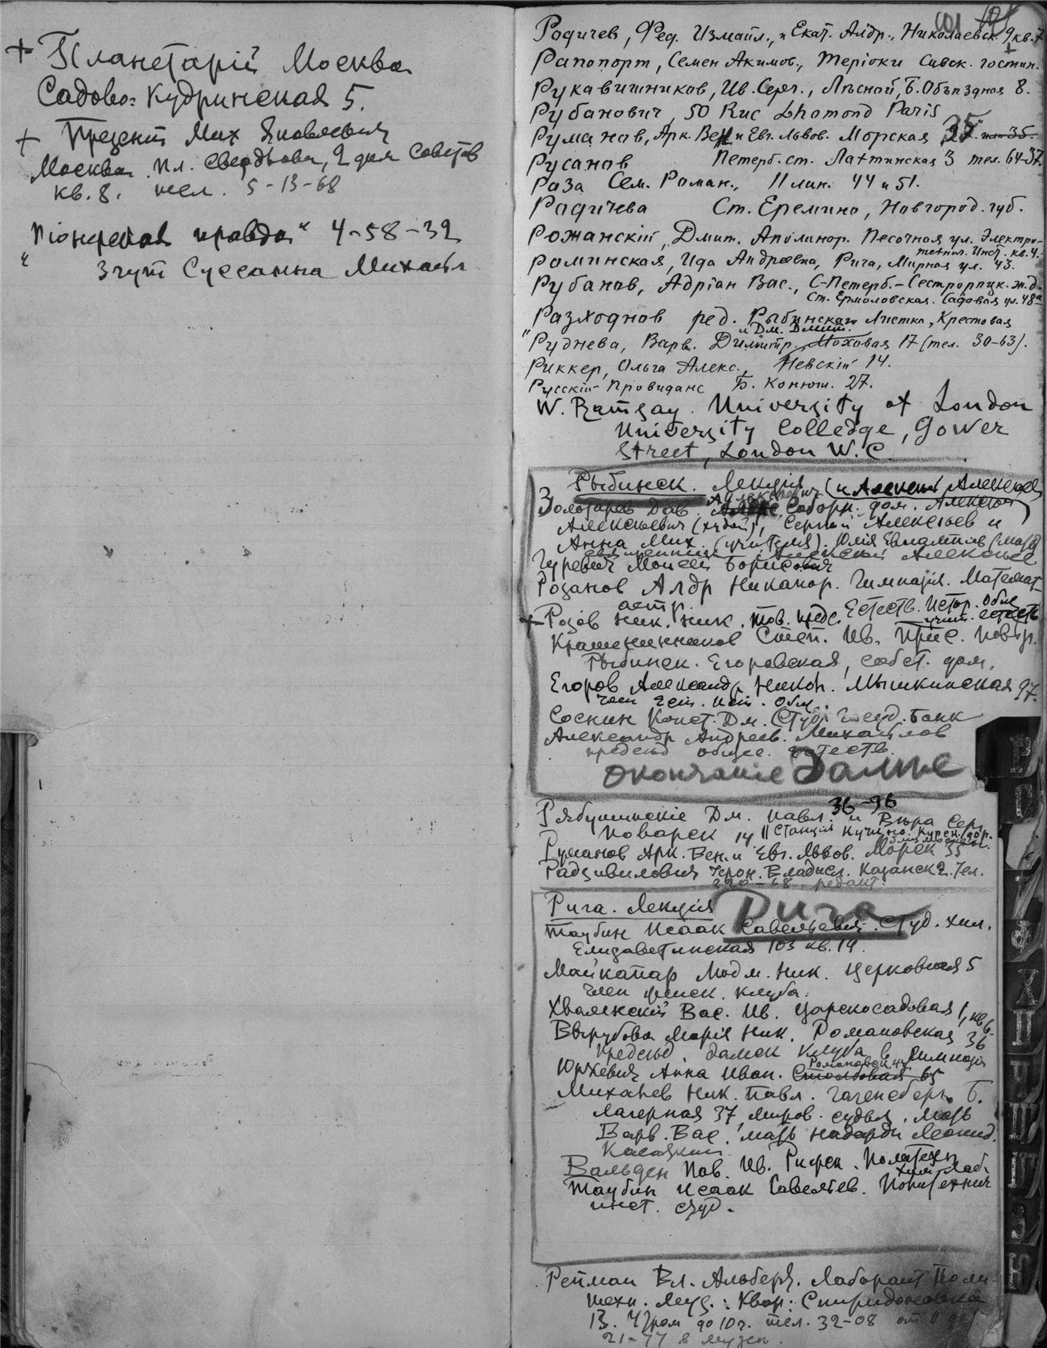 + Планетарій Москва
Садово-Кудринская 5.
+ Презент Мих Яковлевич
Москва. пл. Свердлова, 2 дом Советов
кв. 8. тел. 5-13-68
"Піонерская правда" 4-58-32
" Згут Сусанна Михайл
101
Родичев, Фед. Измайл., и Екат. Алдр., Николаевск. 9 кв. 7
Рапопорт, Семен Акимов., Теріоки Сивск. гостин.
Рукавишников, Ив. Серг., Лѣсной, Б. Объѣздная 8.
Рубанович, 50 Rue Lhomond Paris
Руманов, Арк. Вен. и Евг. Львов. Морская 35
Русанов Петерб. ст. Лахтинская 3 тел. 64-37
Раза Сем. Роман., 11 лин. 44 и 51.
Радичева Ст. Еремино, Новгород. губ.
Рожанскій, Дмит. Аполинар. Песочная ул. Электро-
технич. Инст. кв. 4.
Роминская, Ида Андреевна, Рига, Мирная ул. 43.
Рубанов, Адріан Вас., С-Петерб.-Сестрорѣцк. ж.д.
Ст. Ермоловская. Садовая ул. 48а
Разходнов ред. Рыбинскаго Листка, Крестовая
и Дм. Дмит.
"Руднева, Варв. Димитр. Моховая 17 (тел. 30-63).
Риккер, Ольга Алекс., Невскій 14.
Русскій Провиданс Б. Конюш. 27.
W. Ramsay. University of London
University Colledge, Gower
Street, London W.C.
Рыбинск. Лекція (и Алексей Алексеев
Золотарев Дав. Соборн. дом. Алексей
Алексѣевич (худож), Сергѣй Алексѣев и
Анна Мих. (учитель). Юлія
священник Алексѣй Алексѣев
Гуревич Моисей Борисович
Розанов Алдр Никанор. Гимназія. Математ
астр.
+ Розов Ник. Ник. тов. предс. Естеств. Истор. Общ
учит. естеств
Крашенинников Степ. Ив. Прис. повѣр.
Рыбинск. Егоровская, собст. дом.
Егоров Александр Никон. Мышкинская 97.
член Ест. ист. общ.
Соснин Конст. Дм. Студ. Госуд. Банк
Александр Андреев. Михайлов
предсѣд общес. естеств.
окончаніе Далше
36-96
Рябушинскіе Дм. Павл. и Вѣра Серг
Поварск 14 || Станція Кучино, Курск. дор.
Руманов Арк. Вен. и Евг. Львов. Морск 35
Радзивилович Герон. Владисл. Казанск 2. Тел.
220-68. редакт.
Рига. Лекція Рига
Таубин Исаак Савельевич. Студ. хим.
Елизаветинская 103 кв. 19.
Майкапар Людм. Ник. Церковная 5
член женск. клуба.
Хваленскій Вас. Ив. Царскосадовая 1, кв 6
Вырубова Марія Ник. Романовская 36
Предсѣд. дамск клуба и гимназія
Романовск 43
Юркевич Анна Иван. Столбовая 65
Михаѣев Ник. Павл. Гагенсберг. Б.
Лагерная 37, миров. судья, мать
Варв. Вас, мать Надежды Леонид.
Казаткин
Вальден Пав. Ив. Рижск. Политехн
хим. лаб.
Таубин Исаак Савельев. Политехнич
инст. студ.
Рейман Вл. Альберт. Лаборант Поли-
техн. Музей.: Квар: Спиридоновка
13. Утром до 10 ч. тел. 32-08
21-77 в музеи.